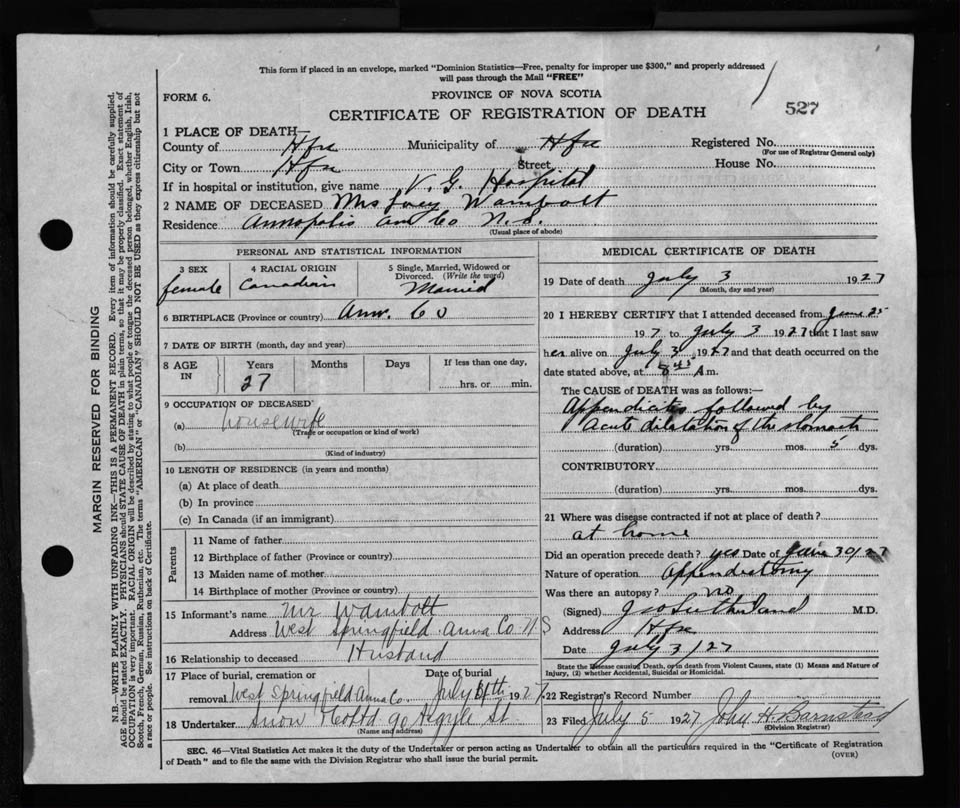 This form if placed in an envelope, marked "Dominion Statistics—Free, penalty for improper use $300," and properly addressed
will pass through the Mail "FREE"
FORM 6.
PROVINCE OF NOVA SCOTIA
CERTIFICATE OF REGISTRATION OF DEATH
527
1 PLACE OF DEATH—
County of Hfx Municipality of Hfx Registered No.
(For use of Registrar General only)
City or Town Hfx Street House No.
If in hospital or institution, give name V. G. Hospital
2 NAME OF DECEASED Mrs Wambolt
Residence Annapolis Ann Co N.S.
(Usual place of abode)
PERSONAL AND STATISTICAL INFORMATION
3 SEX 4 RACIAL ORIGIN 5 Single, Married, Widowed or
Divorced. (Write the word)
female Canadian Married
6 BIRTHPLACE (Province or country) Ann. Co
7 DATE OF BIRTH (month, day and year)
8 AGE IN Years Months Days If less than one day,
27 hrs. or min.
9 OCCUPATION OF DECEASED
(a) housewife
(Trade or occupation or kind of work)
(b)
(Kind of industry)
10 LENGTH OF RESIDENCE (in years and months)
(a) At place of death
(b) In province
(c) In Canada (if an immigrant)
Parents
11 Name of father
12 Birthplace of father (Province or country)
13 Maiden name of mother
14 Birthplace of mother (Province or country)
15 Informant's name Mr Wambolt
Address West Springfield Anna Co N S
16 Relationship to deceased Husband
17 Place of burial, cremation or Date of burial
removal West Springfield Anna Co. July 4th 1927.
18 Undertaker Snow & Co Ltd 90 Argyle St.
(Name and address)
MEDICAL CERTIFICATE OF DEATH
19 Date of death July 3 1927
(Month, day and year)
20 I HEREBY CERTIFY that I attended deceased from June 25
1927 to July 3 1927 that I last saw
her alive on July 3 1927 and that death occurred on the
date stated above, at 8 45 A.m.
The CAUSE of DEATH was as follows:
Appendicitis followed by
acute dilatation of the stomach
(duration) yrs. mos. 5 dys.
CONTRIBUTORY
(duration) yrs. mos. dys.
21 Where was disease contracted if not at place of death?
at home
Did an operation precede death? yes Date of June 30/27
Nature of operation Appendectomy
Was there an autopsy? no
(Signed) Sutherland M.D.
Address Hfx
Date July 3/27
State the Disease causing Death, or in death from Violent Causes, state (1) Means and Nature of
Injury, (2) whether Accidental, Suicidal or Homicidal.
22 Registrar's Record Number
23 Filed July 5 1927 John H. Barnstead
(Division Registrar)
SEC. 46—Vital Statistics Act makes it the duty of the Undertaker or person acting as Undertaker to obtain all the particulars required in the "Certificate of Registration
of Death" and to file the same with the Division Registrar who shall issue the burial permit.
(OVER)
MARGIN RESERVED FOR BINDING
N.B.—WRITE PLAINLY WITH UNFADING INK—THIS IS A PERMANENT RECORD. Every item of information should be carefully supplied.
AGE should be stated EXACTLY. PHYSICIANS should STATE CAUSE OF DEATH in plain terms, so that it may be properly classified. Exact statement of
OCCUPATION is very important. RACIAL ORIGIN will be described by stating to what people or tongue the deceased person belonged, whether English, Irish,
Scotch, French, German, Russian, Ruthenian, etc. The terms "AMERICAN" or "CANADIAN" SHOULD NOT BE USED as they express citizenship but not
a race or people. See instructions on back of Certificate.